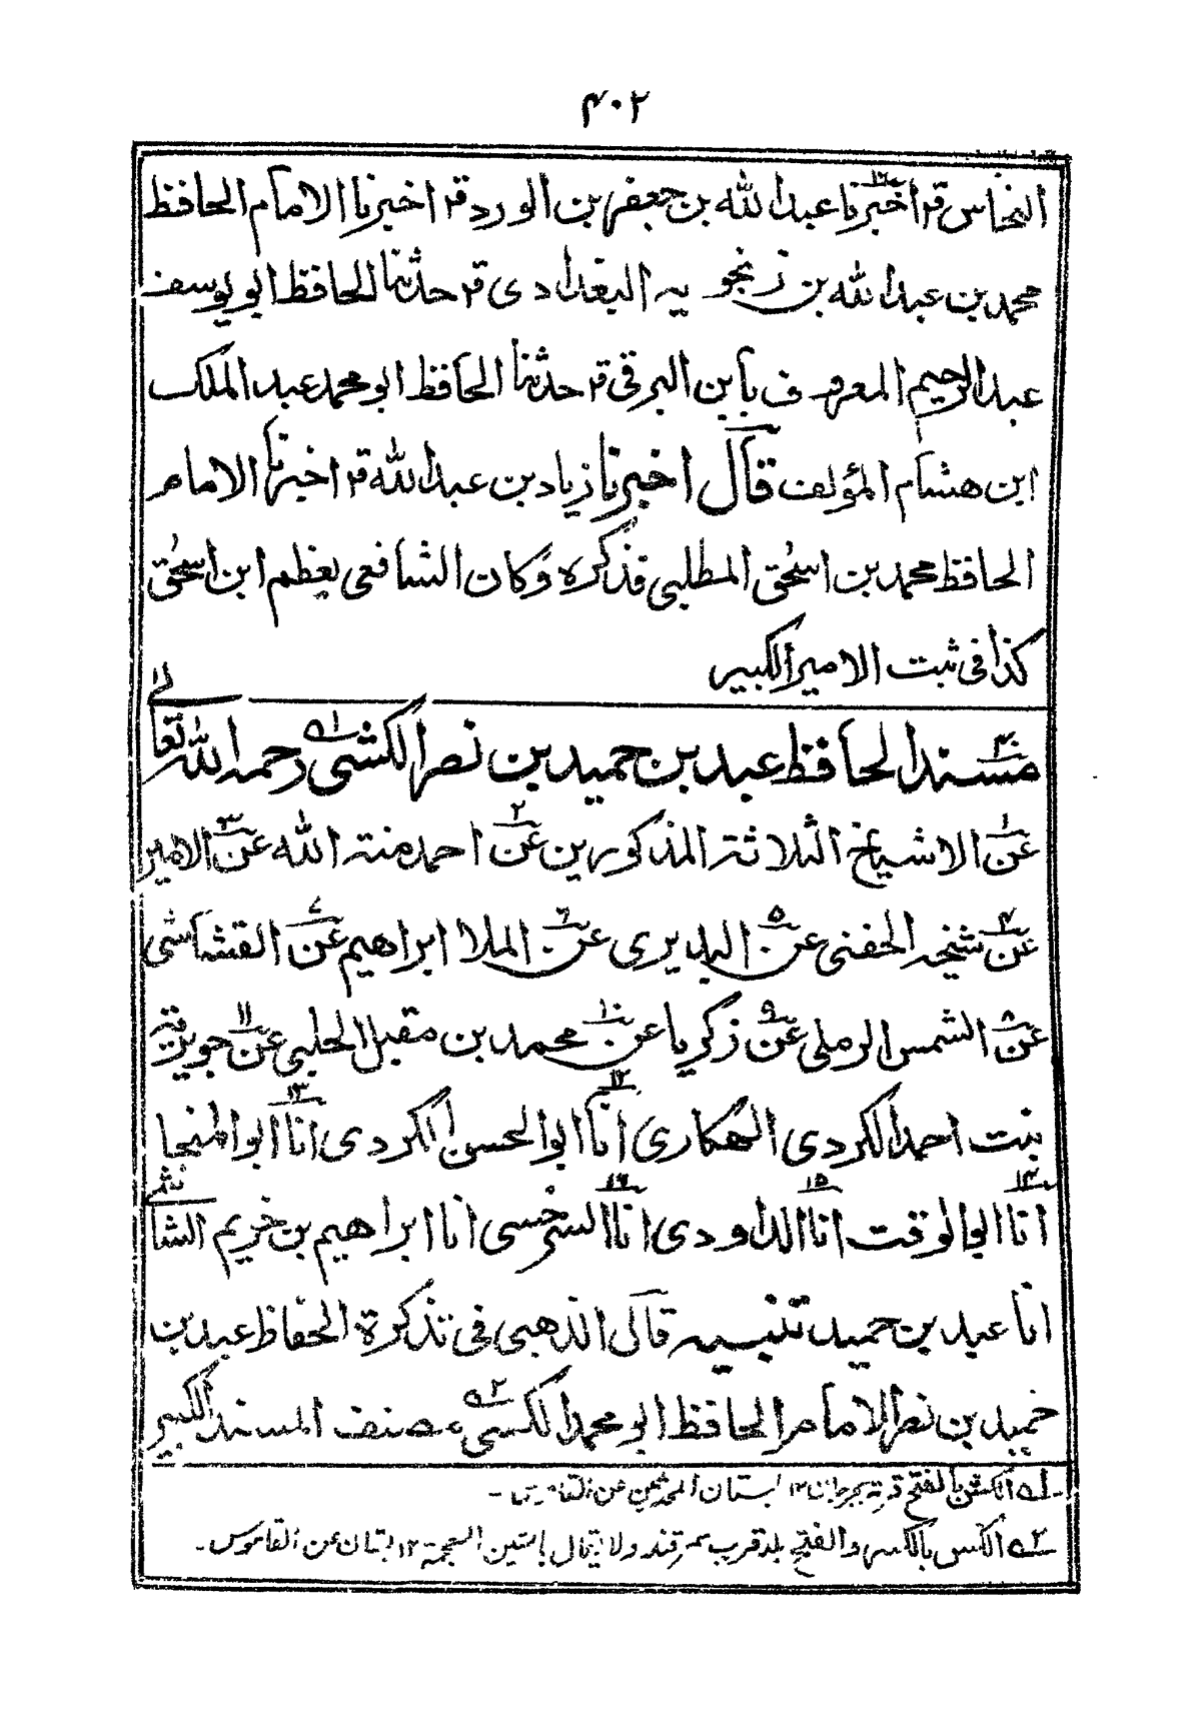 ۴۰۲
النحاس قر اخبرنا عبدالله بن جعفر بن الورد قر اخبرنا الامام الحافظ
محمد بن عبدالله بن زنجويه البغدادى قر حدثنا الحافظ ابو يوسف
عبدالرحيم المعروف بابن البرقى قر حدثنا الحافظ ابو محمد عبد الملك
ابن هشام المؤلف قال اخبرنا زياد بن عبدالله قر اخبرنا الامام
الحافظ محمد بن اسحٰق المطلبى فذكره وكان الشافعى يعظم ابن اسحٰق
كذا فى ثبت الامير الكبير
مسند الحافظ عبد بن حميد بن نصر الكشى رحمه الله تعالى
عن الاشياخ الثلاثة المذكورين عن احمد منة الله عن الامير
عن شيخه الحفنى عن البديرى عن الملا ابراهيم عن القشاشى
عن الشمس الرملى عن زكريا عن محمد بن مقبل الحلبى عن جويرية
بنت احمد الكردى الهكارى انا ابو الحسن الكردى انا ابو المنجا
انا ابو الوقت انا الداودى انا السرخسى انا ابراهيم بن خريم الشاشى
انا عبد بن حميد تنبيه قال الذهبى فى تذكرة الحفاظ عبد بن
حميد بن نصر الامام الحافظ ابو محمد الكسى مصنف المسند الكبير
۱ه الكش بالفتح قرية بجرجان ۱۲ بستان المحدثين عن القاموس -
۲ه الكس بالكسر والفتح بلد قرب سمرقند ولا تقال بالشين المعجمة ۱۲ بستان عن القاموس -